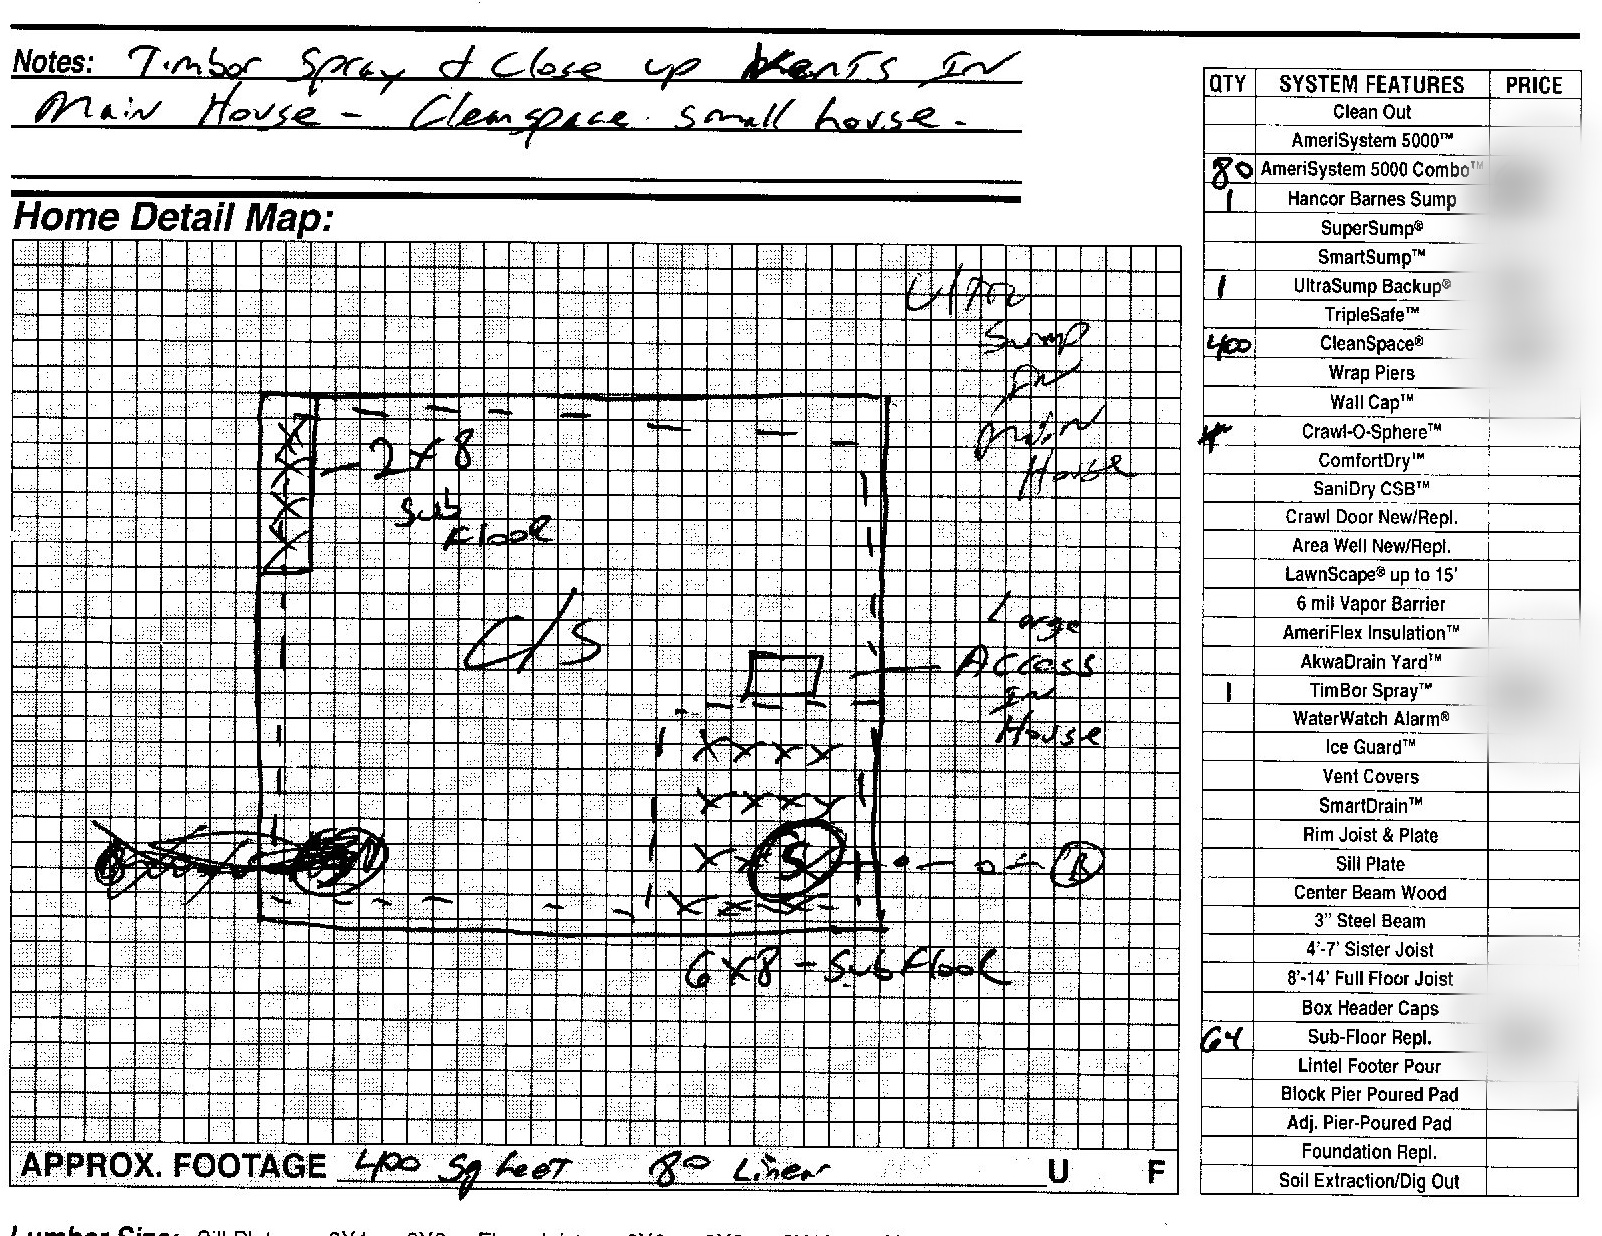 Notes: Timbor Spray & Close up Vents In
Main House - Cleanspace small house.
Home Detail Map:
Ultra
Sump
In
Main
House
2x8
Sub
Floor
C/S
Large
Access
In
House
XXXX
XXXX
S
B
6x8 - Sub Floor
APPROX. FOOTAGE 400 Sq feet 80 Liner U F
QTY SYSTEM FEATURES PRICE
Clean Out
AmeriSystem 5000™
80 AmeriSystem 5000 Combo™
1 Hancor Barnes Sump
SuperSump®
SmartSump™
1 UltraSump Backup®
TripleSafe™
400 CleanSpace®
Wrap Piers
Wall Cap™
Crawl-O-Sphere™
ComfortDry™
SaniDry CSB™
Crawl Door New/Repl.
Area Well New/Repl.
LawnScape® up to 15'
6 mil Vapor Barrier
AmeriFlex Insulation™
AkwaDrain Yard™
1 TimBor Spray™
WaterWatch Alarm®
Ice Guard™
Vent Covers
SmartDrain™
Rim Joist & Plate
Sill Plate
Center Beam Wood
3" Steel Beam
4'-7' Sister Joist
8'-14' Full Floor Joist
Box Header Caps
64 Sub-Floor Repl.
Lintel Footer Pour
Block Pier Poured Pad
Adj. Pier-Poured Pad
Foundation Repl.
Soil Extraction/Dig Out